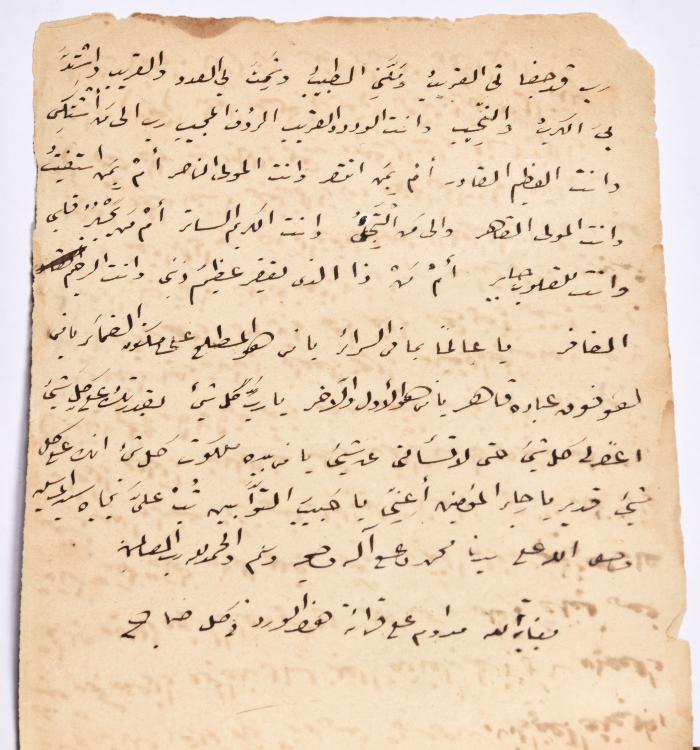 رب قد جفاني القريب وملني الطبيب وشمت بي العدو والقريب واشتد
بي الكرب والنحيب وانت الودود القريب الرؤف المجيب رب الى من أشتكي
وانت العظيم القادر أم بمن انتصر وانت المولى الناصر أم بمن استغيث
وانت المولى القاهر والى من ألتجئ وانت الكريم الساتر أم من يجبر قلبي
وانت للقلوب جابر أم من ذا الذي يغفر عظيم ذنبي وانت الرحيم
الغافر يا عالما بما في السرائر يا من هو المطلع على مكنون الضمائر يا من
هو فوق عباده قاهر يا من هو الأول والآخر يا رب كل شئ بقدرتك على كل شئ
اغفر لي كل شئ حتى لا تسألني عن شئ يا من بيده ملكوت كل شئ انك على كل
شئ قدير يا جابر المؤمنين أعني يا حبيب التوابين تب علي بجاه سيد المرسلين
وصلى الله على سيدنا محمد وعلى آله وصحبه وسلم والحمد لله رب العالمين
مداوم على قرائة هذا الورد في كل صباح